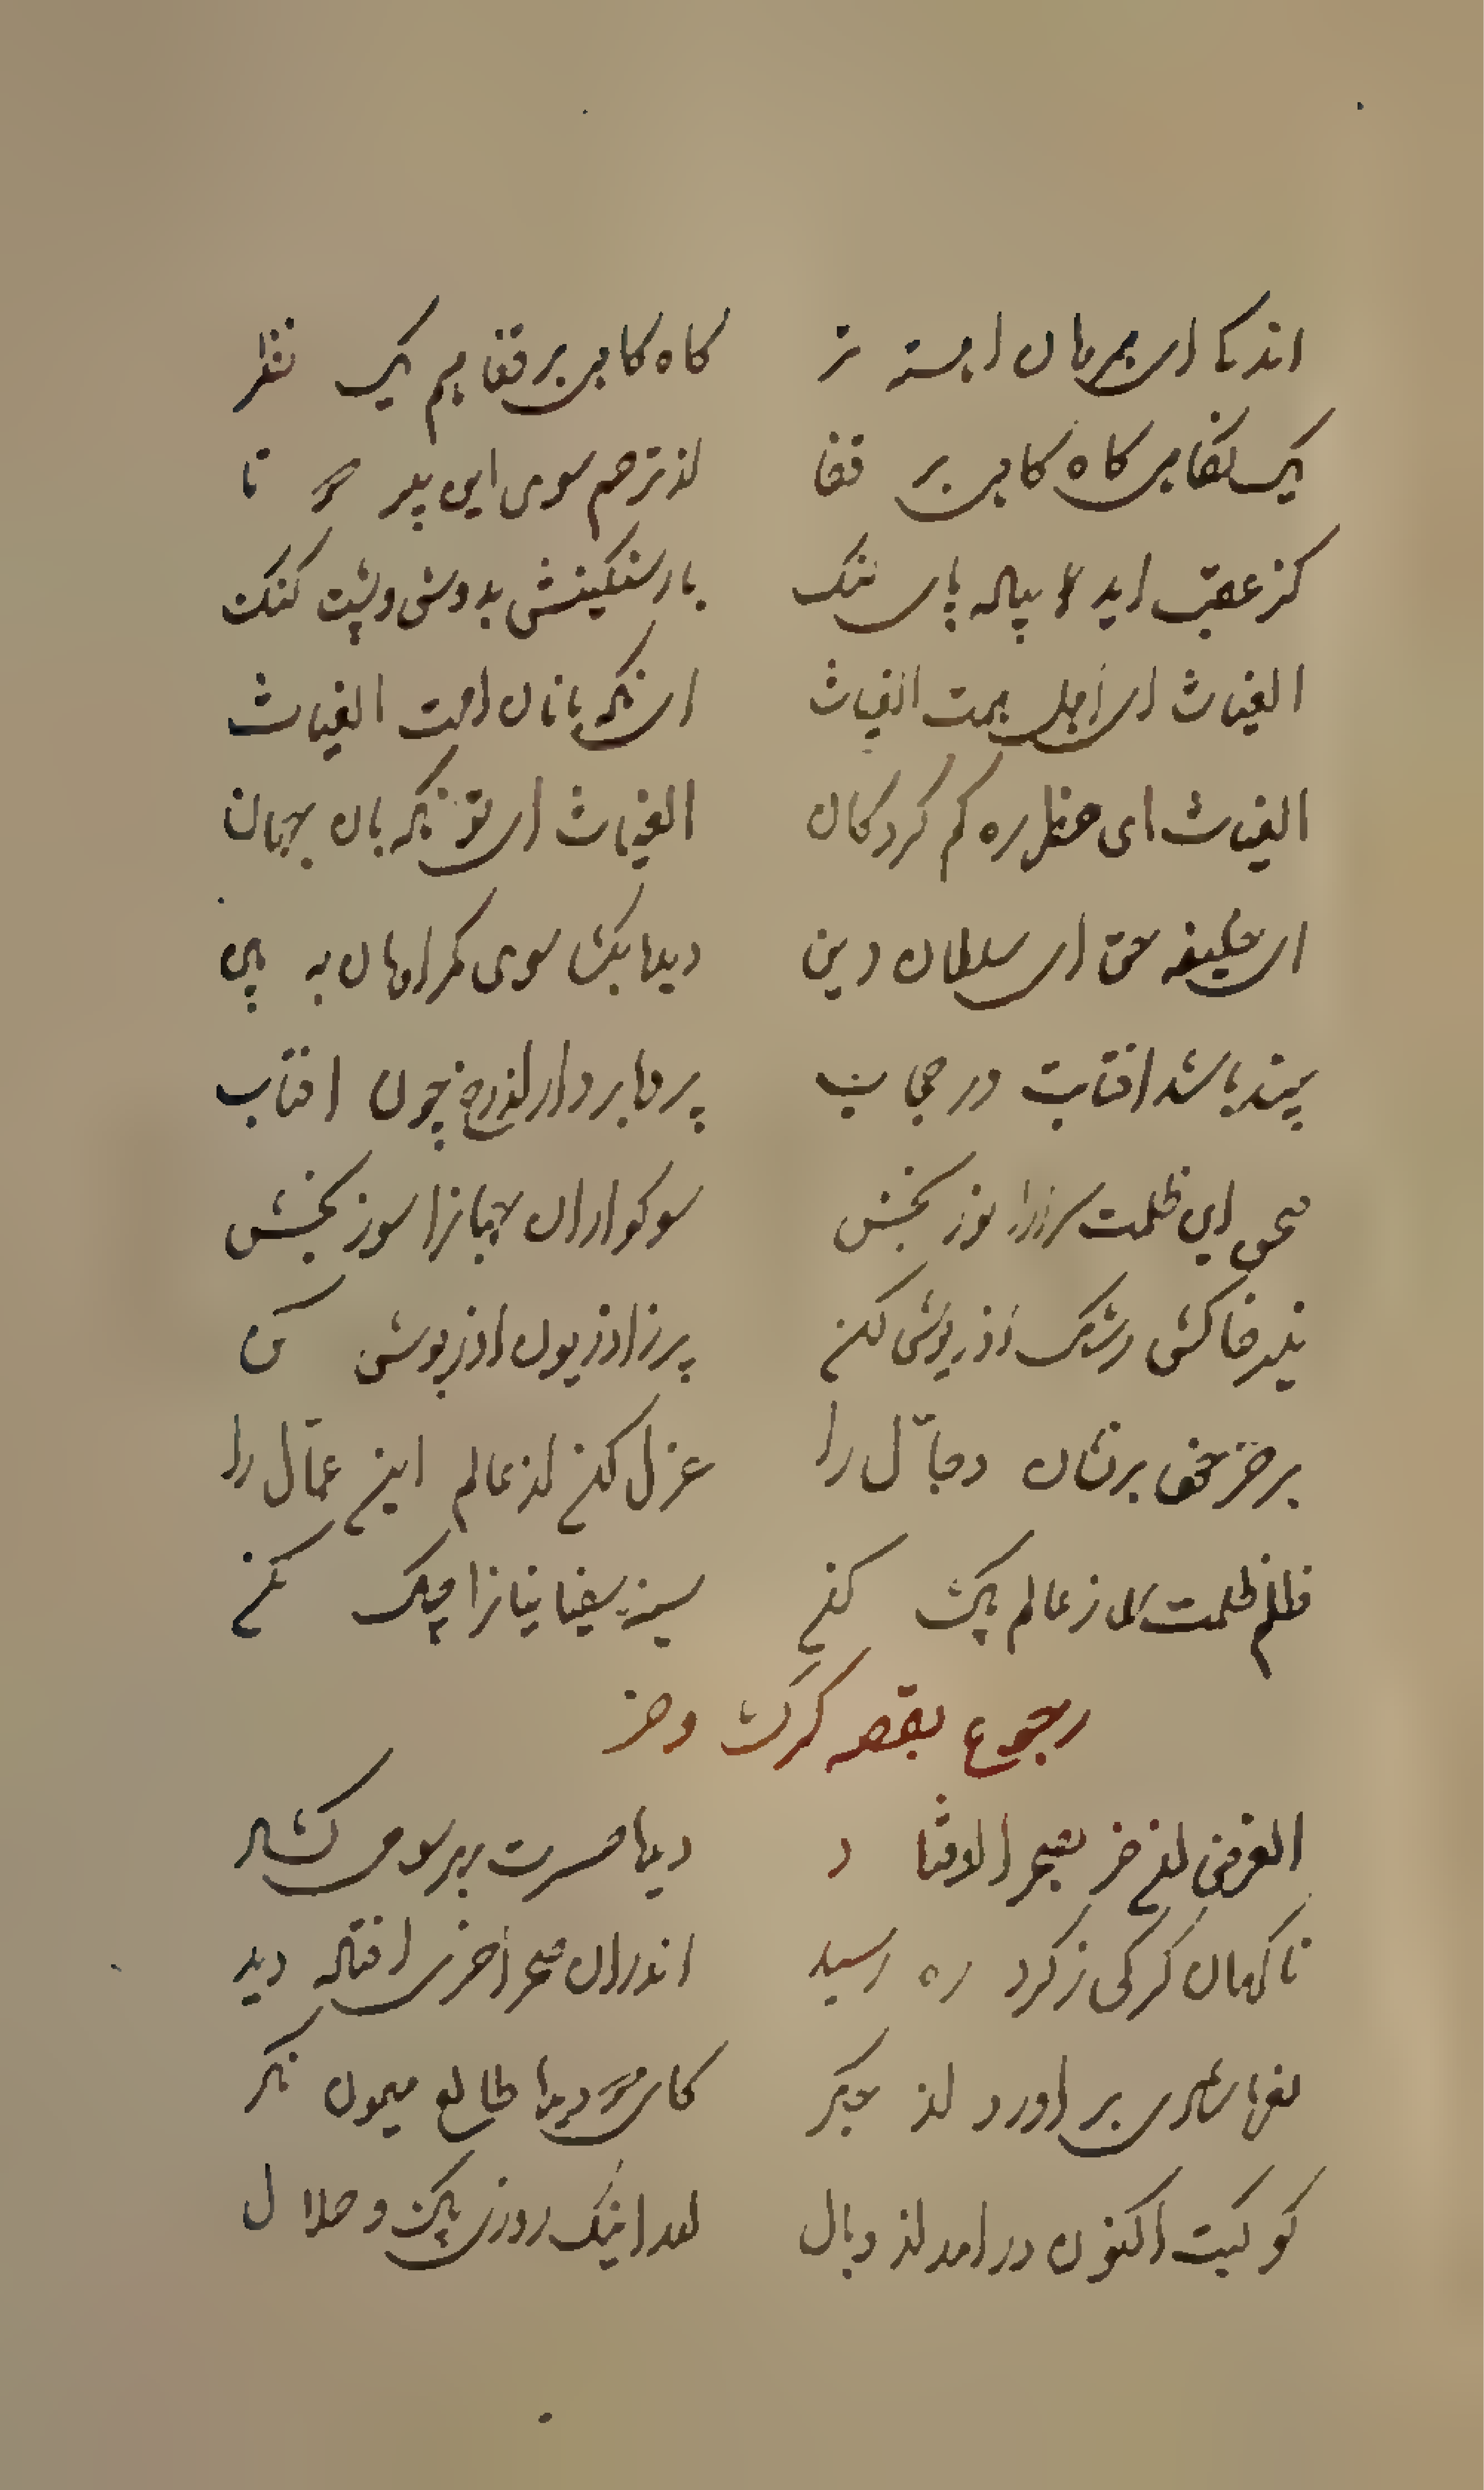 اندکی ای مهربان اهسته تر کاه کاهی بر قفا هم یک نظر
یک نکاهی کاه کاهی بر قفا از ترحم سوی این پیر دو تا
کز عقب اید پیاده پای لنک بار سنکینش بدوش و پشت کنک
الغیاث ای اهل همت الغیاث ای نکهبانان امت الغیاث
الغیاث ای خضر ره کم کردکان الغیاث ای تو نکهبان جهان
ای خلیفه حق ای سلطان دین دیده بکشا سوی کمراهان به بین
چند باشد افتابت در حجاب پرده بردار از رخ چون افتاب
صحن این ظلمت سرا را نور بخش سوکواران جهانرا سور بخش
تیره خاکش رشک اذرپوش کن پر ز اذریون اذرپوش کن
بر خر خود بر نشان دجال را عزل کن از عالم این عمال را
ظلم ظلمت را ز عالم پاک کن سینه سفیانیانرا چاک کن
رجوع بقصه کرک و خر
الغرض ان خر بصحرا اوفتاد دیده حسرت بهر سوی کشاد
ناکهان کرکی ز کرد ره رسید اندران صحرا خری افتاده دید
نعره شادی بر اورد از جکر کای دو دیده طالع میمون نکر
کوکبت اکنون در امد از وبال امد اینک روزی پاک و حلال